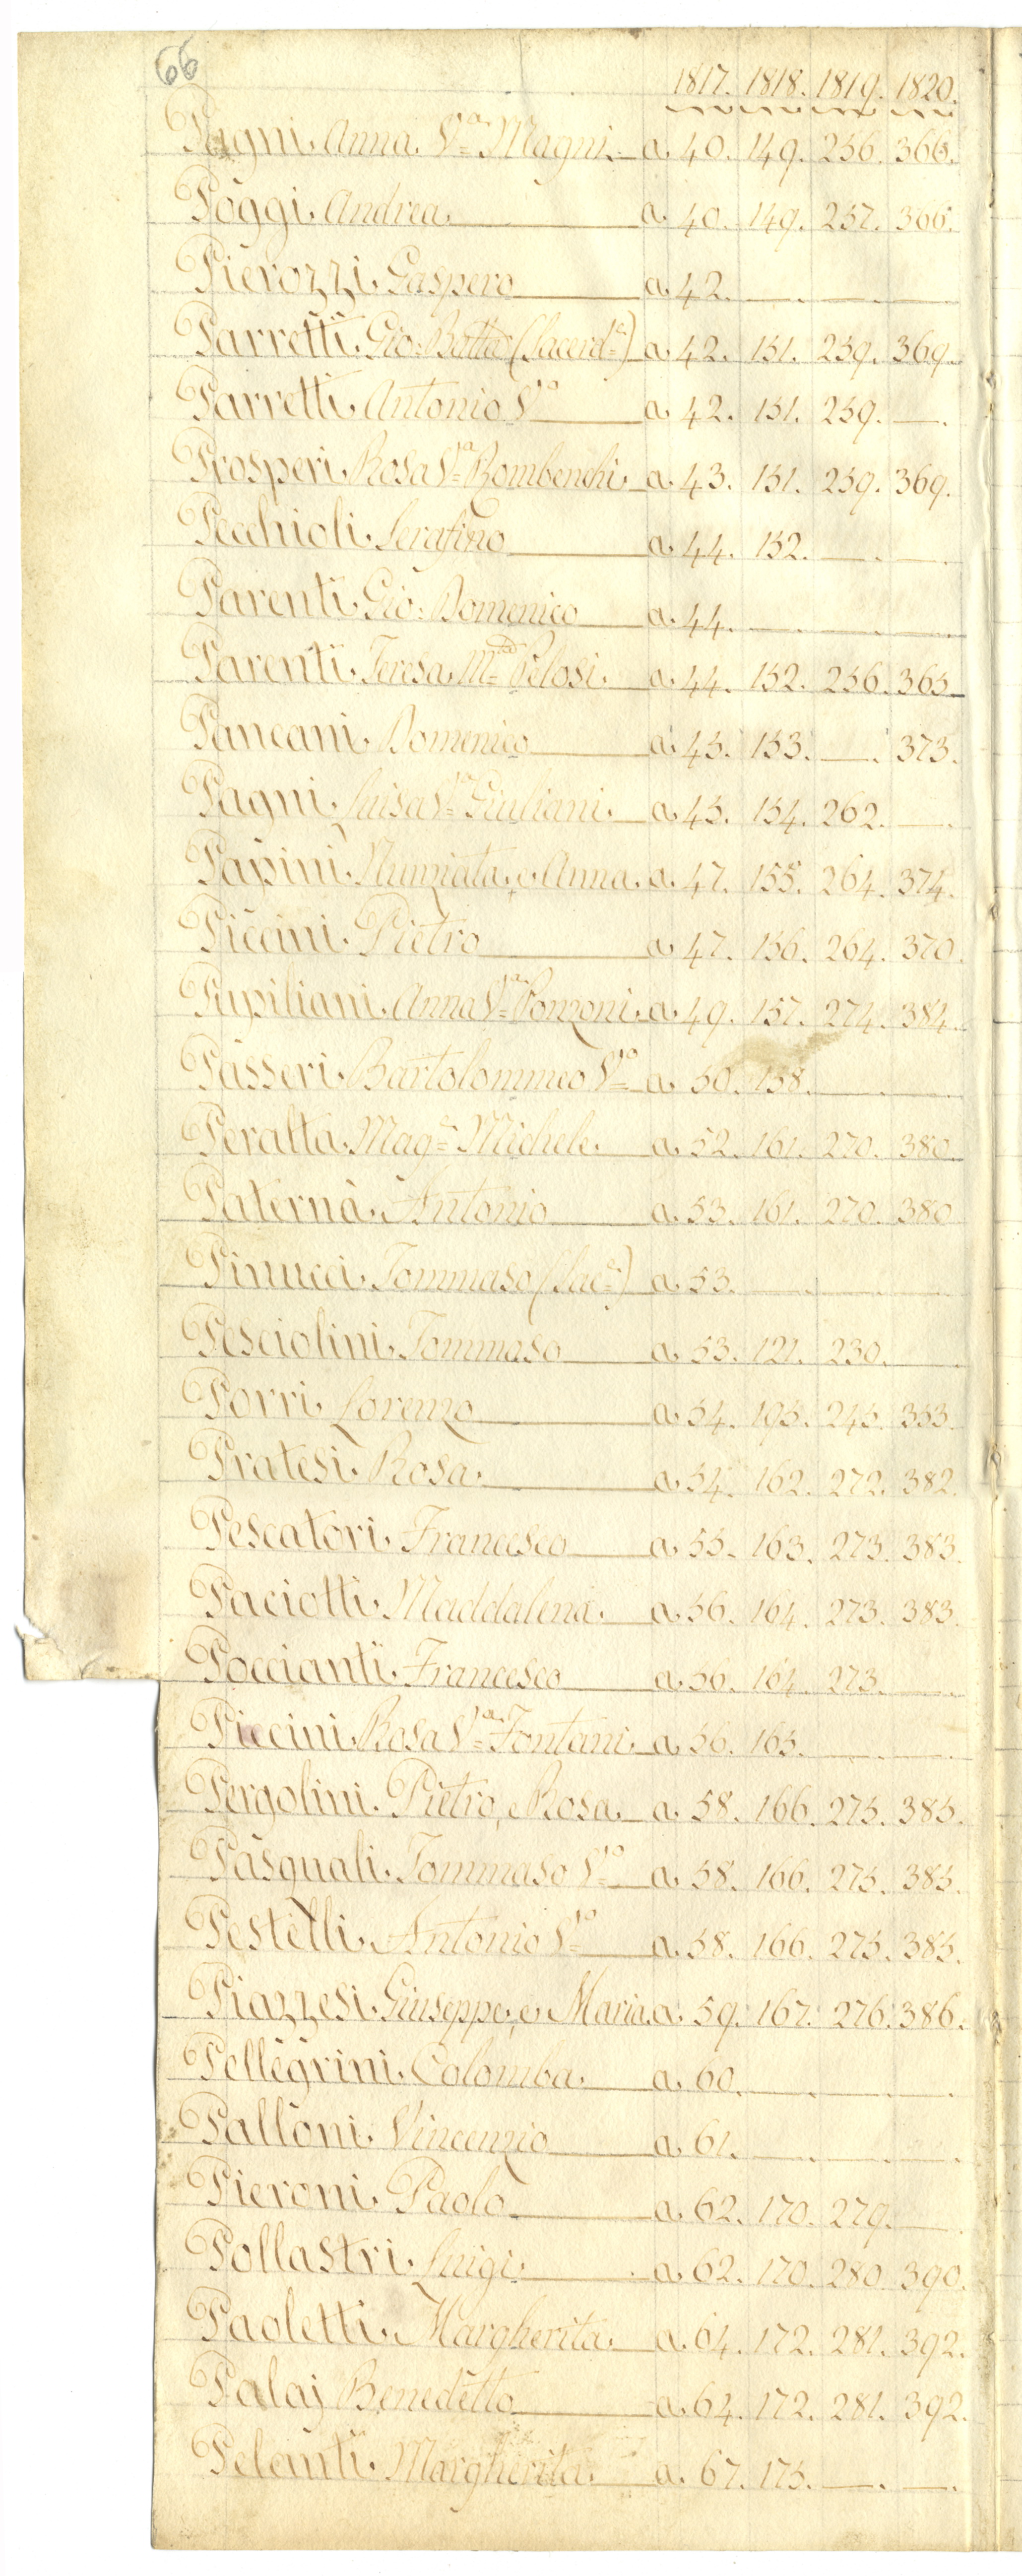 66
1817. 1818. 1819. 1820.
Pagni. Anna. Va Magni. a. 40. 149. 256. 366.
Poggi. Andrea. a. 40. 149. 257. 366.
Pierozzi. Gaspero a. 42. —. —. —.
Parretti. Gio: Batta (Sacerd.e) a. 42. 151. 259. 369.
Parretti. Antonio Vo a. 42. 151. 259. —.
Prosperi. Rosa Va Bombenchi. a. 43. 151. 259. 369.
Pecchioli. Serafino a. 44. 152. —. —.
Parenti. Gio: Domenico a. 44. —. —. —.
Parenti. Teresa. Mta Pelosi. a. 44. 152. 256. 365.
Panceani. Domenico a. 45. 153. —. 373.
Pagni. Luisa Va Giuliani. a. 45. 154. 262. —.
Papini. Nunziata, e Anna. a. 47. 155. 264. 374.
Piccini. Pietro a. 47. 156. 264. 370.
Pupiliani. Anna Va Ponzoni. a. 49. 157. 274. 384.
Passeri. Bartolommeo Vo a. 50. 158. —. —.
Peralta. Mage Michele. a. 52. 161. 270. 380.
Paternà. Antonio a. 53. 161. 270. 380
Pinucci. Tommaso (Sac.e) a. 53. —. —. —.
Pesciolini. Tommaso a. 53. 121. 230.
Porri. Lorenzo a. 54. 195. 245. 353.
Pratesi. Rosa. a. 54. 162. 272. 382.
Pescatori. Francesco a. 55. 163. 273. 383.
Paciotti. Maddalena. a. 56. 164. 273. 383.
Poccianti. Francesco a. 56. 164. 273. —.
Piccini. Rosa Va Fontani. a. 56. 165. —. —.
Pergolini. Pietro, e Rosa. a. 58. 166. 275. 385.
Pasquali. Tommaso Vo a. 58. 166. 275. 385.
Pestelli. Antonio Vo a. 58. 166. 275. 385.
Piazzesi. Giuseppe, e Maria. a. 59. 167. 276. 386.
Pellegrini. Colomba. a. 60. —. —. —.
Palloni. Vincenzio a. 61. —. —. —.
Pieroni. Paolo a. 62. 170. 279. —.
Pollastri. Luigi. a. 62. 170. 280. 390.
Paoletti. Margherita. a. 64. 172. 281. 392.
Palaj Benedetto a. 64. 172. 281. 392.
Pelenti. Margherita. a. 67. 175. —. —.